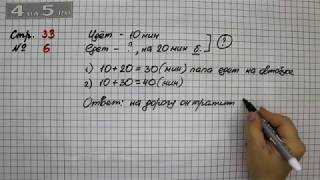 4 на 5
Стр. 33
№ 6
Идёт – 10 мин
Едет – ?, на 20 мин б. ?
1) 10+20=30 (мин) папа едет на автобусе
2) 10+30=40 (мин)
Ответ: на дорогу он тратит